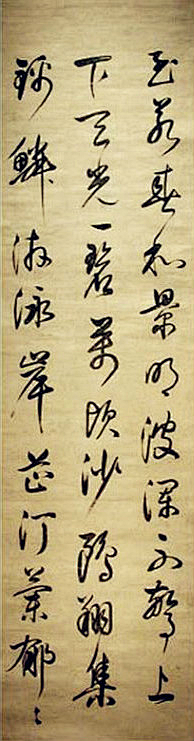 至若春和景明波瀾不驚上
下天光一碧萬頃沙鷗翔集
錦鱗游泳岸芷汀蘭郁〻